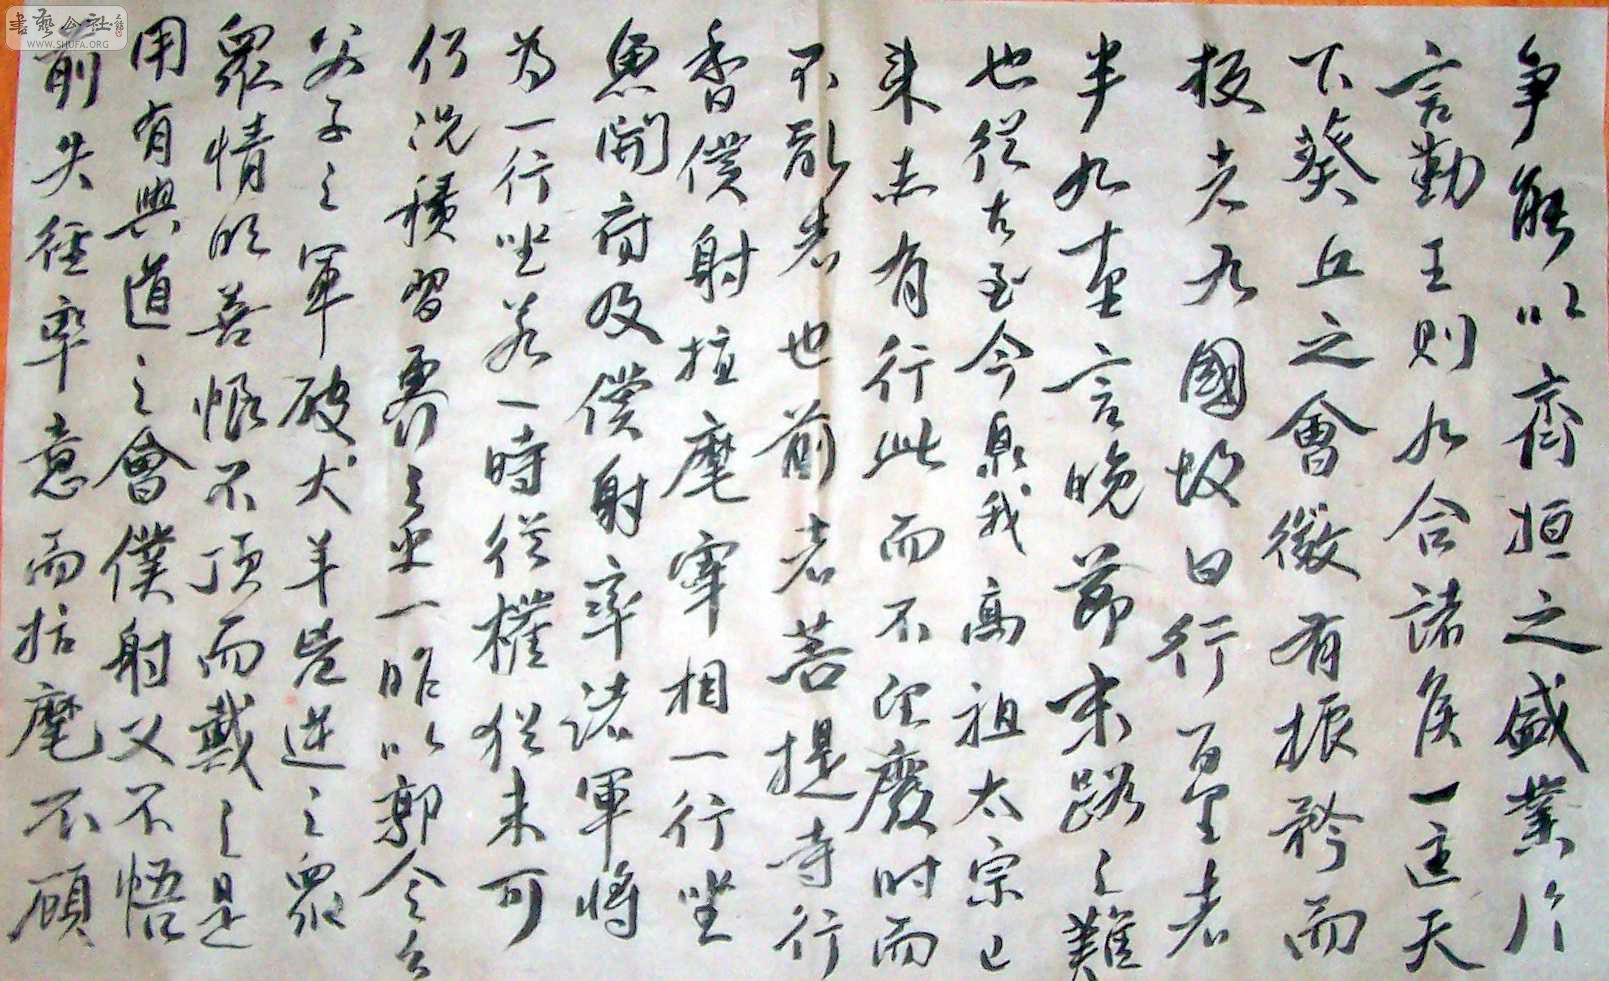 書藝公社
WWW.SHUFA.ORG
争能以齊桓之盛業片
言勤王則九合諸侯一匡天
下葵丘之會微有振矜而
叛者九國故曰行百里者
半九十里言晚節末路之難
也從古至今泉我高祖太宗已
来未有行此而不理廢时而
不亂者也前者菩提寺行
香僕射指麾宰相一行坐
魚開府及僕射率諸軍將
为一行坐若一時從權猶未可
何况積習更行之乎一昨以郭令公
父子之軍破犬羊凶逆之眾
眾情欣喜恨不頂而戴之是
用有興道之會僕射又不悟
前失徑率意而指麾不顧